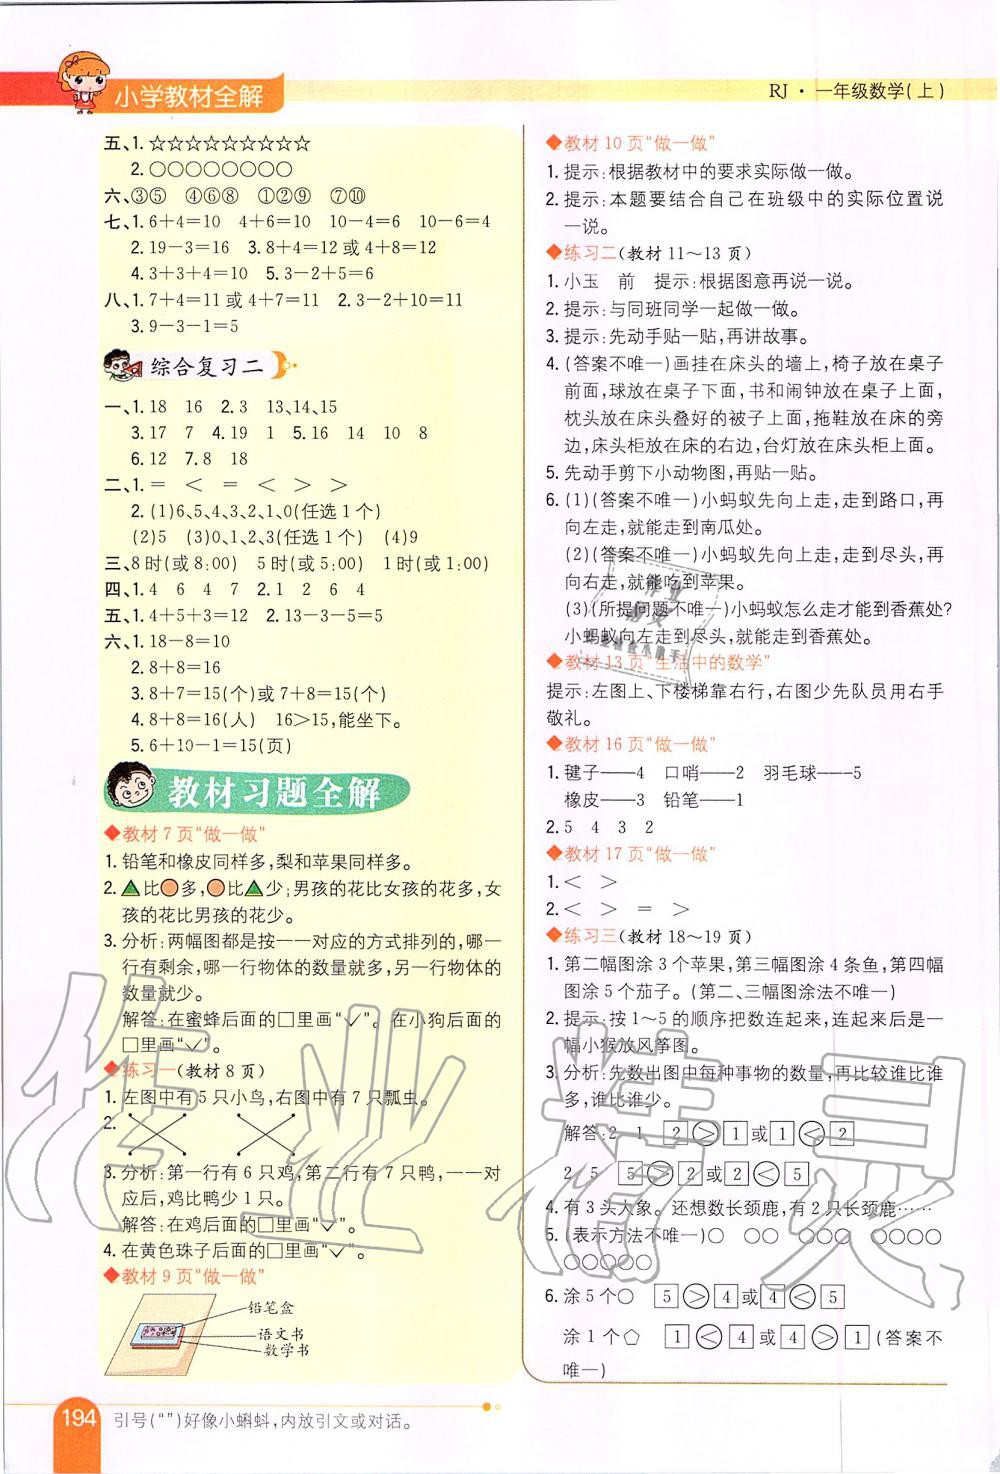 小学教材全解
RJ·一年级数学(上)
五、1.☆☆☆☆☆☆☆☆☆
2.○○○○○○○○
六、③⑤ ④⑥⑧ ①②⑨ ⑦⑩
七、1.6+4=10 4+6=10 10-4=6 10-6=4
2.19-3=16 3.8+4=12或4+8=12
4.3+3+4=10 5.3-2+5=6
八、1.7+4=11或4+7=11 2.3-2+10=11
3.9-3-1=5
综合复习二
一、1.18 16 2.3 13、14、15
3.17 7 4.19 1 5.16 14 10 8
6.12 7.8 18
二、1.= < = < > >
2.(1)6、5、4、3、2、1、0(任选1个)
(2)5 (3)0、1、2、3(任选1个) (4)9
三、8时(或8:00) 5时(或5:00) 1时(或1:00)
四、1.4 6 4 7 2.1 2 6 4
五、1.4+5+3=12 2.13-3-5=5
六、1.18-8=10
2.8+8=16
3.8+7=15(个)或7+8=15(个)
4.8+8=16(人) 16>15,能坐下。
5.6+10-1=15(页)
教材习题全解
◆教材7页“做一做”
1.铅笔和橡皮同样多,梨和苹果同样多。
2.▲比●多,●比▲少;男孩的花比女孩的花多,女
孩的花比男孩的花少。
3.分析:两幅图都是按一一对应的方式排列的,哪一
行有剩余,哪一行物体的数量就多,另一行物体的
数量就少。
解答:在蜜蜂后面的□里画“✓”。在小狗后面的
□里画“✓”。
◆练习一(教材8页)
1.左图中有5只小鸟,右图中有7只瓢虫。
2.
3.分析:第一行有6只鸡,第二行有7只鸭,一一对
应后,鸡比鸭少1只。
解答:在鸡后面的□里画“✓”。
4.在黄色珠子后面的□里画“✓”。
◆教材9页“做一做”
铅笔盒
语文书
数学书
◆教材10页“做一做”
1.提示:根据教材中的要求实际做一做。
2.提示:本题要结合自己在班级中的实际位置说
一说。
◆练习二(教材11~13页)
1.小玉 前 提示:根据图意再说一说。
2.提示:与同班同学一起做一做。
3.提示:先动手贴一贴,再讲故事。
4.(答案不唯一)画挂在床头的墙上,椅子放在桌子
前面,球放在桌子下面,书和闹钟放在桌子上面,
枕头放在床头叠好的被子上面,拖鞋放在床的旁
边,床头柜放在床的右边,台灯放在床头柜上面。
5.先动手剪下小动物图,再贴一贴。
6.(1)(答案不唯一)小蚂蚁先向上走,走到路口,再
向左走,就能走到南瓜处。
(2)(答案不唯一)小蚂蚁先向上走,走到尽头,再
向右走,就能吃到苹果。
(3)(所提问题不唯一)小蚂蚁怎么走才能到香蕉处?
小蚂蚁向左走,走到尽头,就能走到香蕉处。
◆教材13页“生活中的数学”
提示:左图上、下楼梯靠右行,右图少先队员用右手
敬礼。
◆教材16页“做一做”
1.毽子——4 口哨——2 羽毛球——5
橡皮——3 铅笔——1
2.5 4 3 2
◆教材17页“做一做”
1.< >
2.< > = >
◆练习三(教材18~19页)
1.第二幅图涂3个苹果,第三幅图涂4条鱼,第四幅
图涂5个茄子。(第二、三幅图涂法不唯一)
2.提示:按1~5的顺序把数连起来,连起来后是一
幅小猴放风筝图。
3.分析:先数出图中每种事物的数量,再比较谁比谁
多,谁比谁少。
解答:2 1 2>1或1<2
2 5 5>2或2<5
4.有3头大象。还想数长颈鹿,有2只长颈鹿……
5.(表示方法不唯一)○ ○○ ○○○ ○○○○
○○○○○
6.涂5个○ 5>4或4<5
涂1个⬠ 1<4或4>1(答案不
唯一)
194
引号(“”)好像小蝌蚪,内放引文或对话。
作业精灵